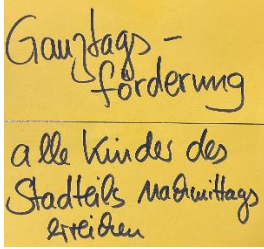 Ganztags-
förderung
alle Kinder des
Stadtteils nachmittags
erreichen